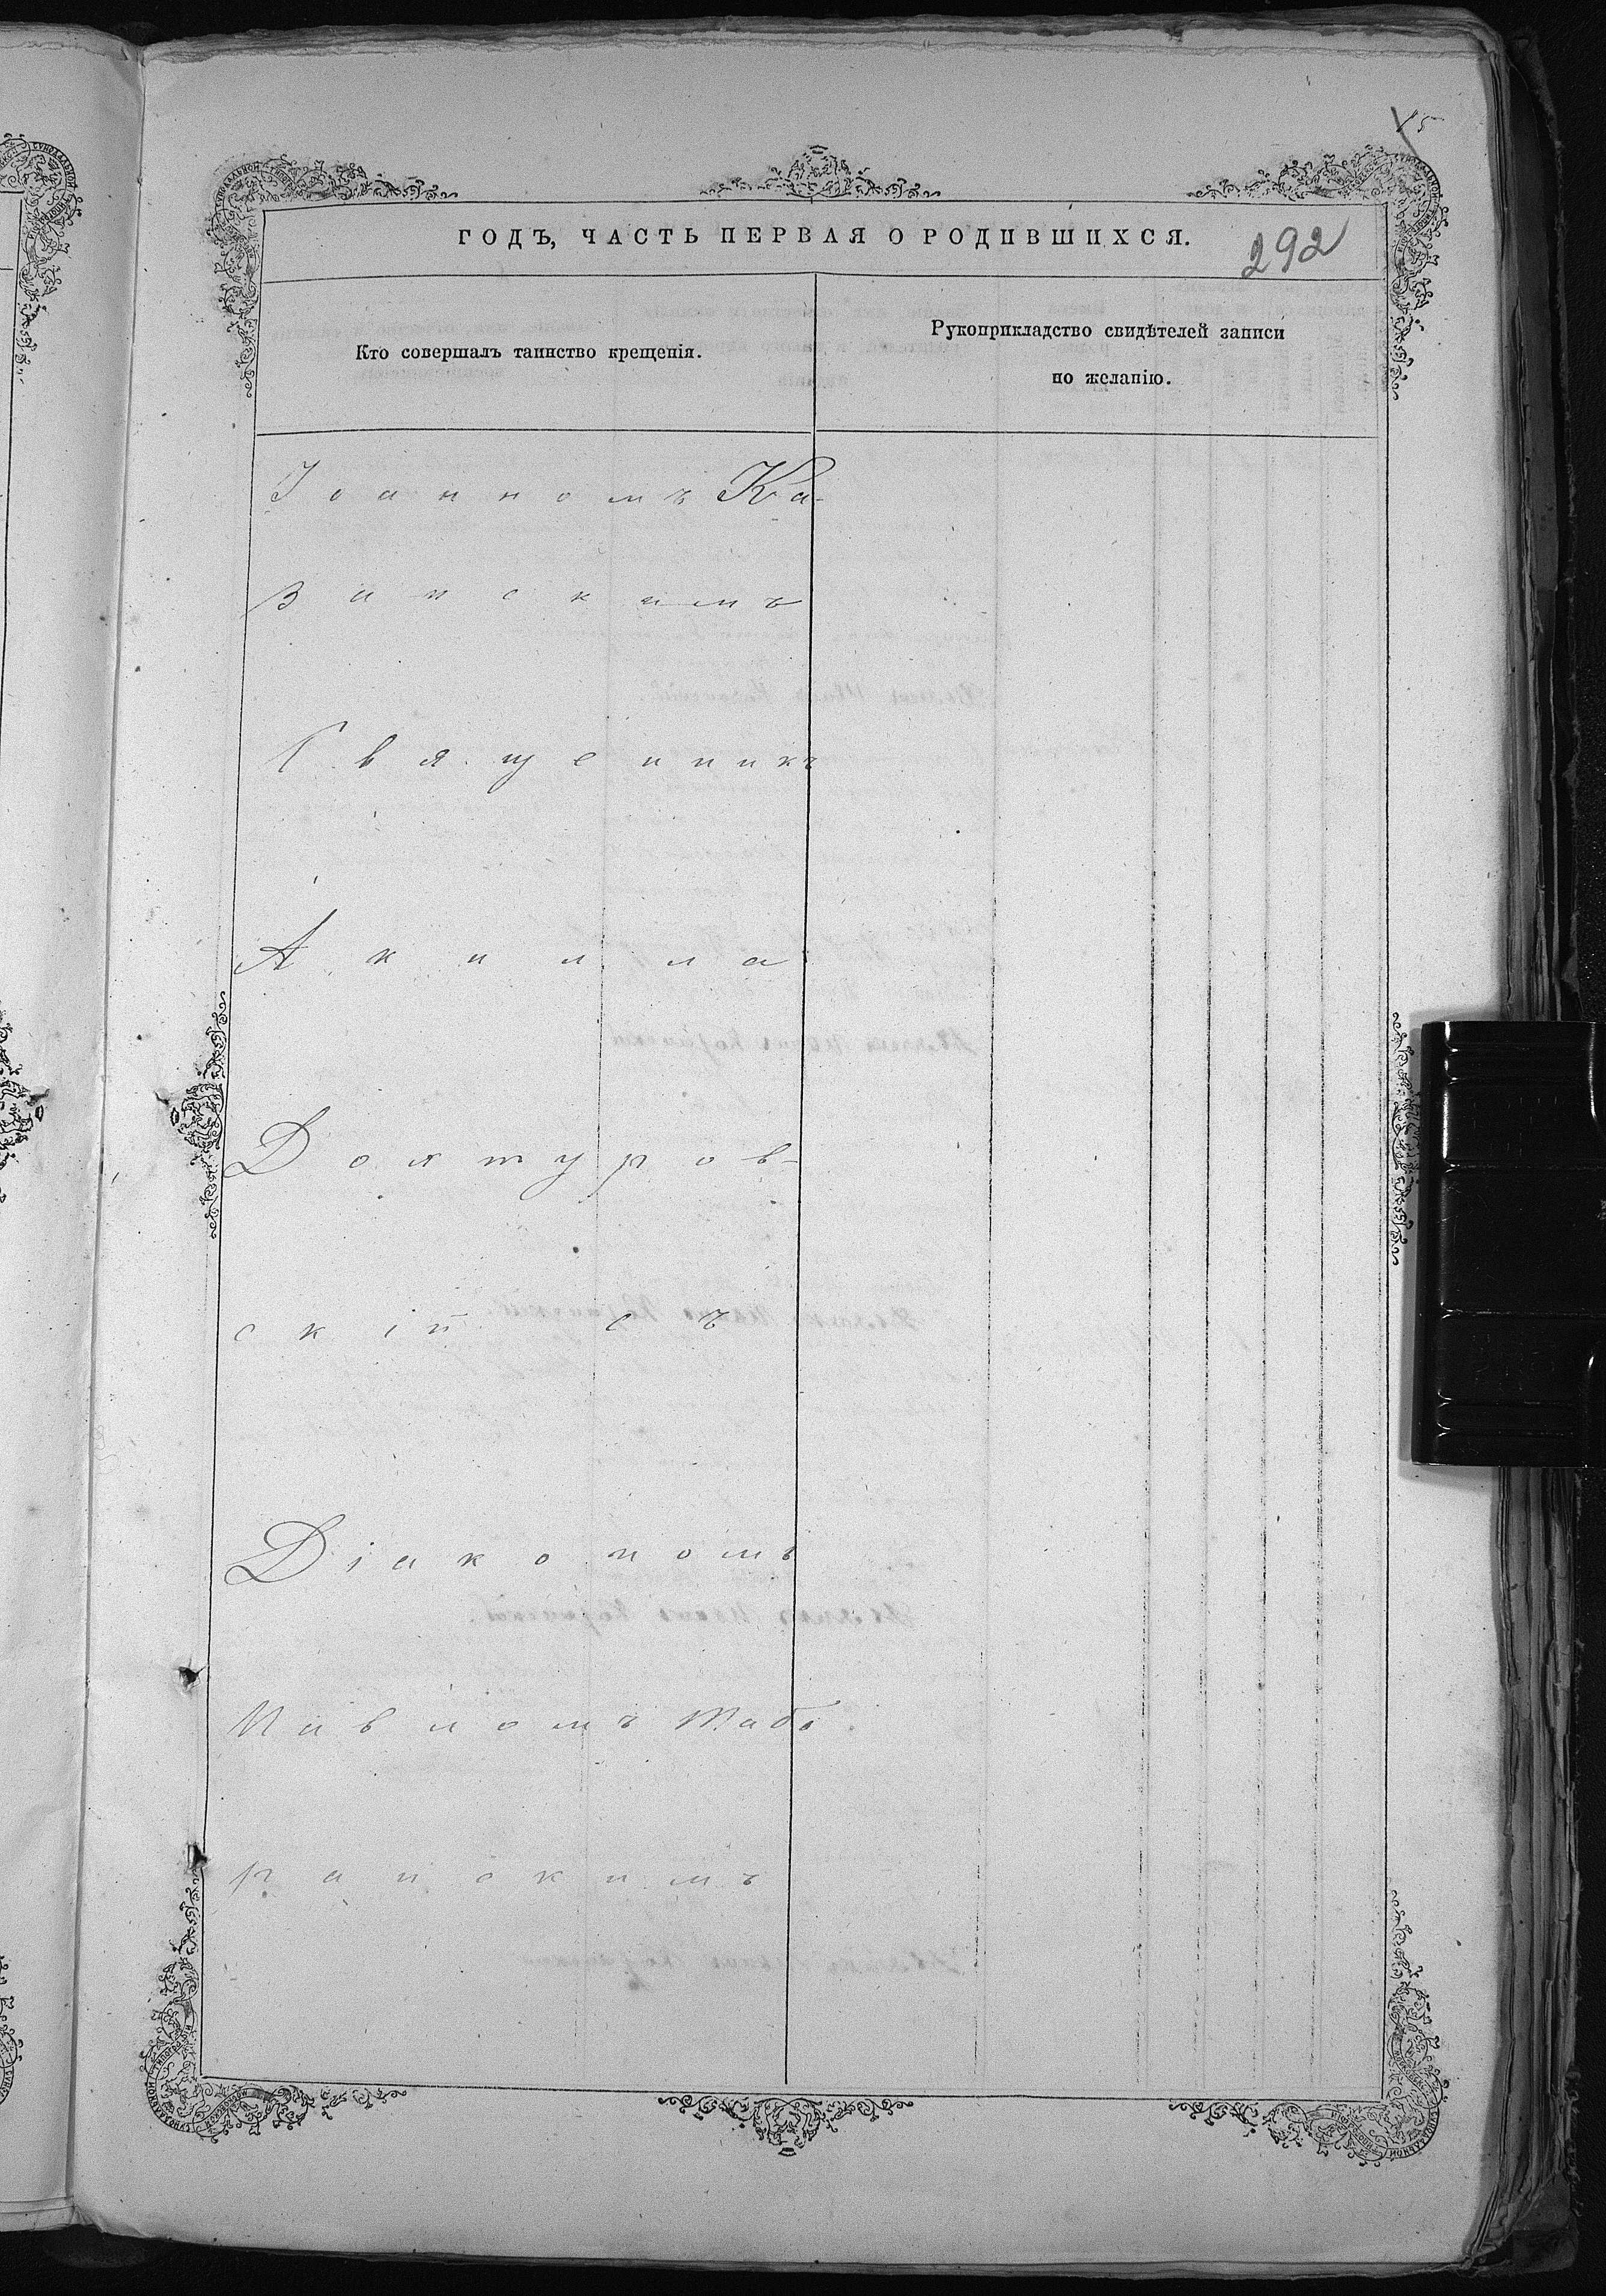 15
ГОДЪ, ЧАСТЬ ПЕРВАЯ О РОДИВШИХСЯ.
292
Кто совершалъ таинство крещенія.
Рукоприкладство свидѣтелей записи
по желанію.
Іоанномъ Ка-
занскимъ
Священникъ
Акила
Доктуров-
скій съ
Діакономъ
Павломъ
ранскимъ